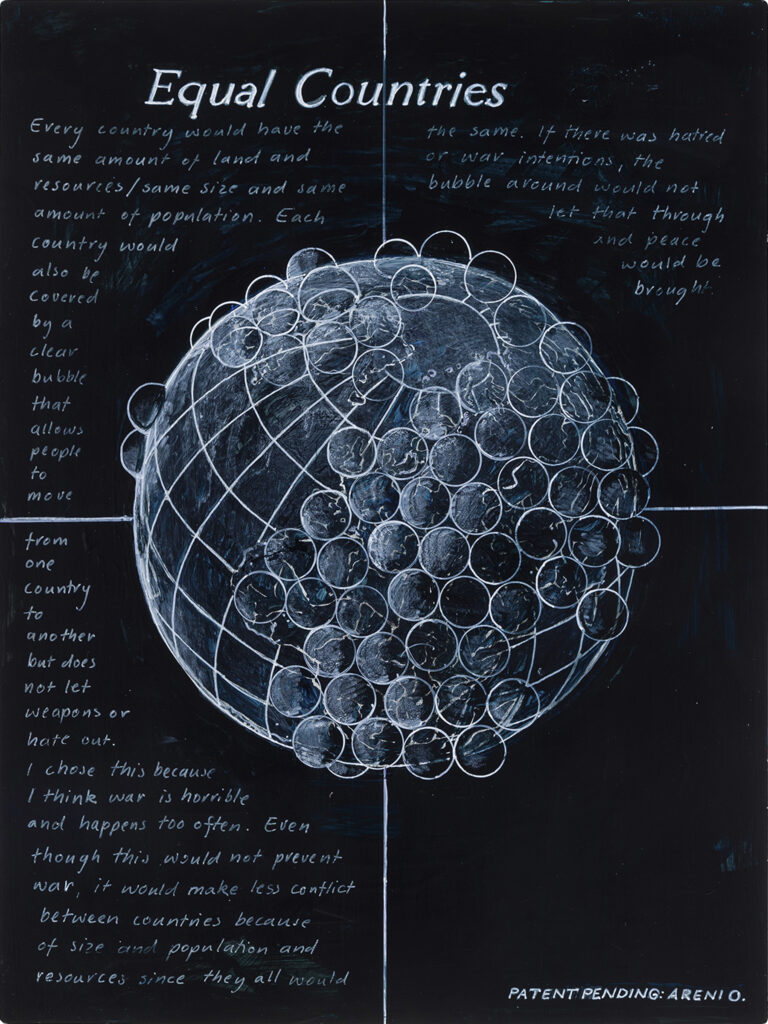 Equal Countries
Every country would have the
same amount of land and
resources/same size and same
amount of population. Each
country would
also be
covered
by a
clear
bubble
that
allows
people
to
move
from
one
country
to
another
but does
not let
weapons or
hate out.
I chose this because
I think war is horrible
and happens too often. Even
though this would not prevent
war, it would make less conflict
between countries because
of size and population and
resources since they all would
the same. If there was hatred
or war intentions, the
bubble around would not
let that through
and peace
would be
brought.
PATENT PENDING: ARENI O.